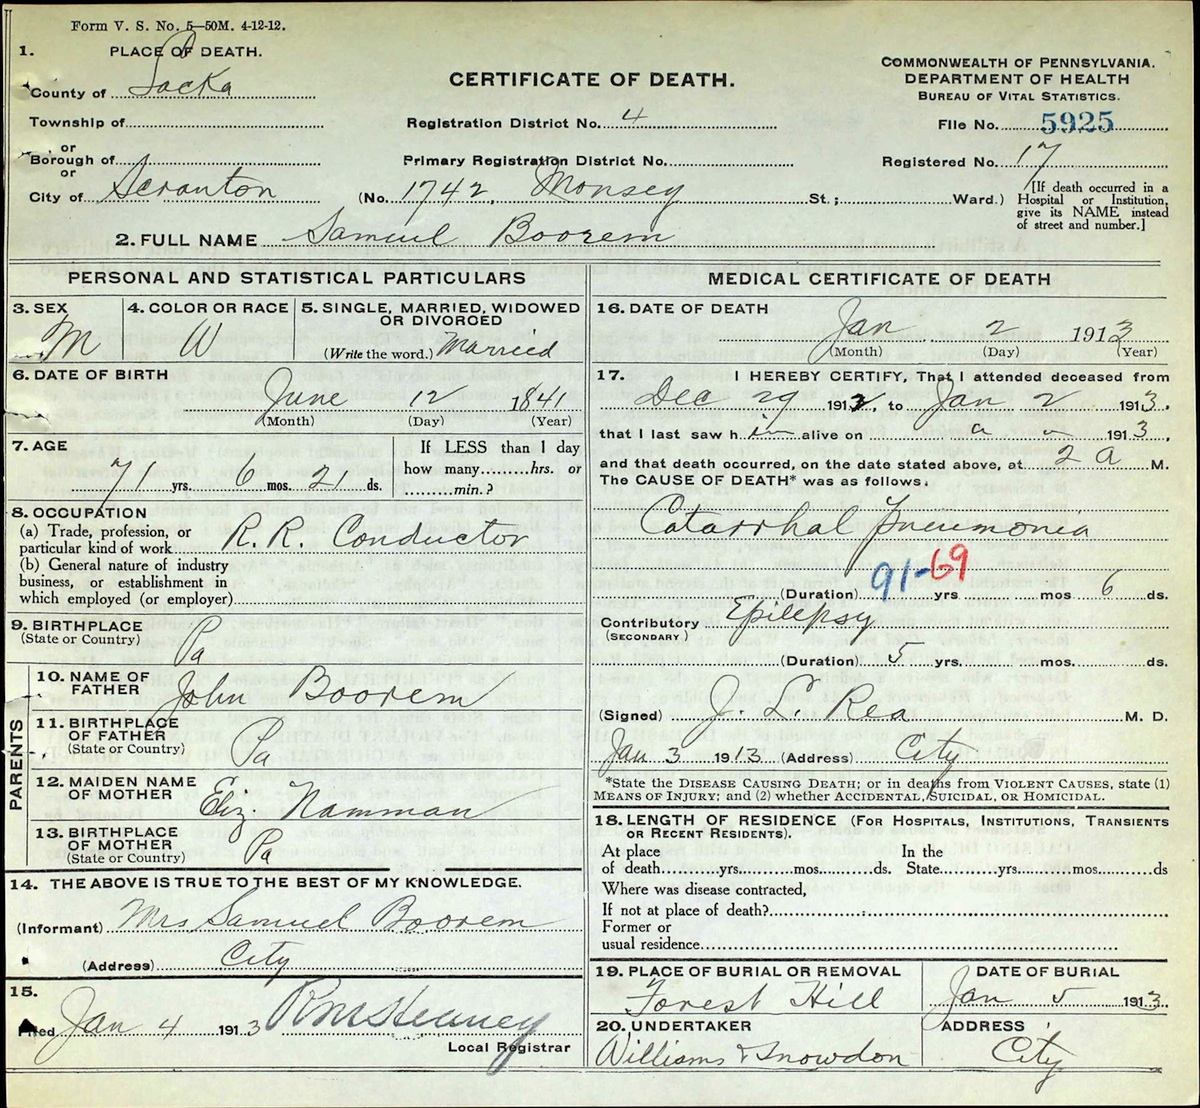 Form V. S. No. 5—50M. 4-12-12.
1. PLACE OF DEATH.
County of Lacka
Township of
or
Borough of
or
City of Scranton
CERTIFICATE OF DEATH.
Registration District No. 4
Primary Registration District No.
(No. 1742, Monsey St.; Ward.)
COMMONWEALTH OF PENNSYLVANIA.
DEPARTMENT OF HEALTH
BUREAU OF VITAL STATISTICS.
File No. 5925
Registered No. 17
[If death occurred in a
Hospital or Institution,
give its NAME instead
of street and number.]
2. FULL NAME Samuel Boorem
PERSONAL AND STATISTICAL PARTICULARS
3. SEX
M
4. COLOR OR RACE
W
5. SINGLE, MARRIED, WIDOWED
OR DIVORCED
(Write the word.) Married
6. DATE OF BIRTH
June 12 1841
(Month) (Day) (Year)
7. AGE
71 yrs. 6 mos. 21 ds.
If LESS than 1 day
how many........hrs. or
.........min.?
8. OCCUPATION
(a) Trade, profession, or
particular kind of work R. R. Conductor
(b) General nature of industry
business, or establishment in
which employed (or employer)
9. BIRTHPLACE
(State or Country)
Pa
PARENTS
10. NAME OF
FATHER John Boorem
11. BIRTHPLACE
OF FATHER
(State or Country) Pa
12. MAIDEN NAME
OF MOTHER Eliz. Namman
13. BIRTHPLACE
OF MOTHER
(State or Country) Pa
14. THE ABOVE IS TRUE TO THE BEST OF MY KNOWLEDGE.
(Informant) Mrs Samuel Boorem
(Address) City
15.
Filed Jan 4 1913
Local Registrar
MEDICAL CERTIFICATE OF DEATH
16. DATE OF DEATH
Jan 2 1913
(Month) (Day) (Year)
17. I HEREBY CERTIFY, That I attended deceased from
Dec 29 1912, to Jan 2 1913,
that I last saw him alive on 1913,
and that death occurred, on the date stated above, at 2 a M.
The CAUSE OF DEATH* was as follows.
Catarrhal Pneumonia
91-69
(Duration) yrs mos 6 ds.
Contributory Epilepsy
(SECONDARY)
(Duration) 5 yrs. mos. ds.
(Signed) J. L. Rea M. D.
Jan 3 1913 (Address) City
*State the DISEASE CAUSING DEATH; or in deaths from VIOLENT CAUSES, state (1)
MEANS OF INJURY; and (2) whether ACCIDENTAL, SUICIDAL, OR HOMICIDAL.
18. LENGTH OF RESIDENCE (FOR HOSPITALS, INSTITUTIONS, TRANSIENTS
OR RECENT RESIDENTS).
At place In the
of death........yrs........mos........ds. State........yrs........mos........ds
Where was disease contracted,
If not at place of death?
Former or
usual residence
19. PLACE OF BURIAL OR REMOVAL
Forest Hill
DATE OF BURIAL
Jan 5 1913
20. UNDERTAKER
Williams & Snowdon
ADDRESS
City